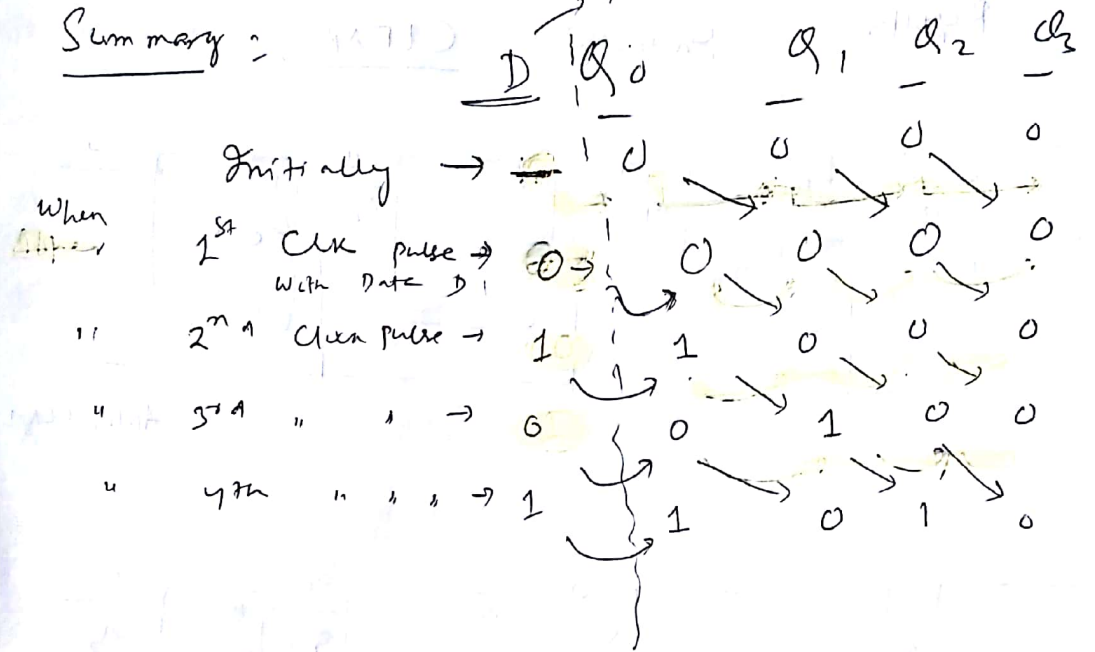 Summary :
D Q0 Q1 Q2 Q3
Initially → 0 0 0 0
When 1st Clk pulse → 0 → 0 0 0 0
With Data D
" 2nd Clock pulse → 1 1 0 0 0
" 3rd " " → 0 0 1 0 0
" 4th " " " → 1 1 0 1 0